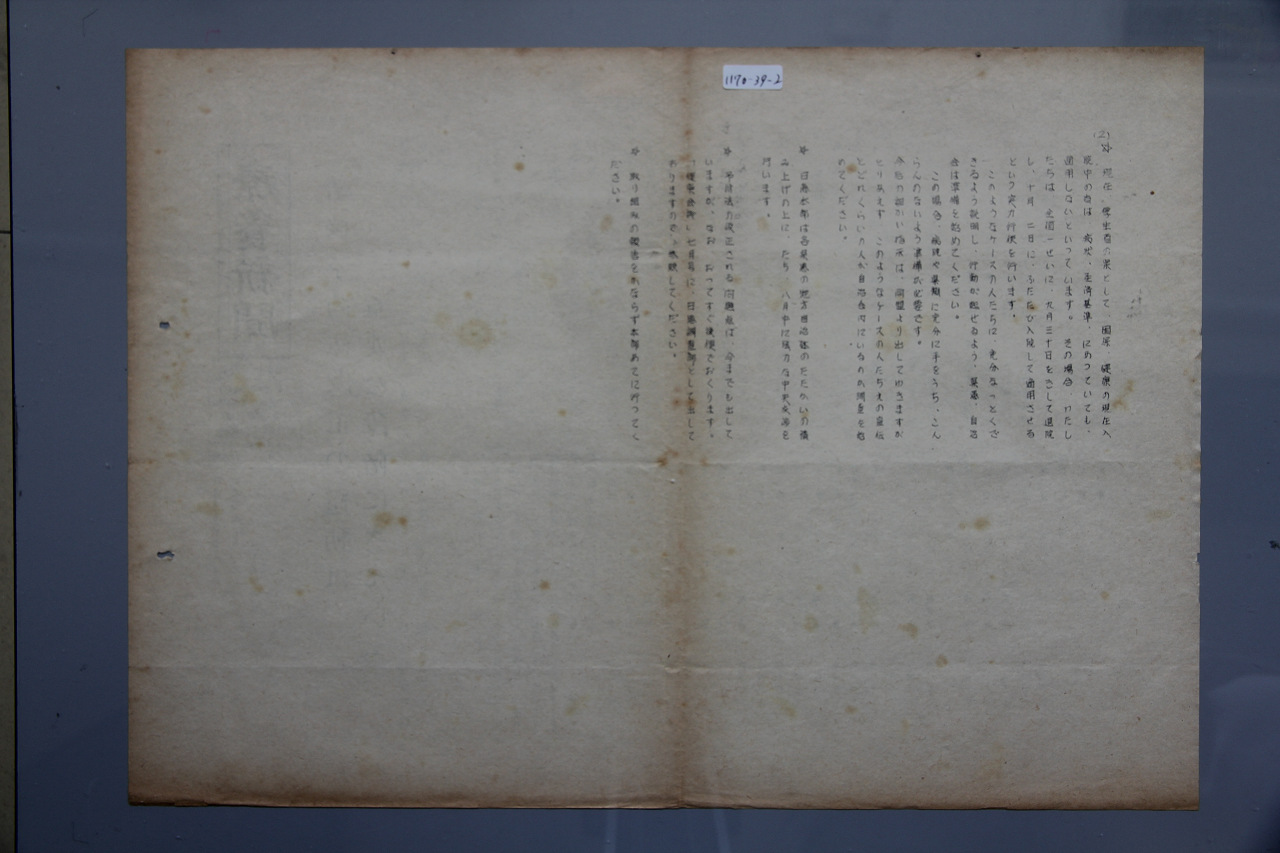 1170-39-2
(2)
☆ 現在、厚生省の案として、国原、健康の現在入
院中の者は、病状、経済基準、にあっていても、
適用しないといっています。その場合、わたし
たちは、全国一せいに、九月三十日をきして退院
し、十月一二日に、ふたたび入院して適用させる
という実力行使を行います。
このようなケースの人たちに、充分なっとくで
きるよう説明し、行動が起せるよう、募患、自治
会は準備を始めてください。
この場合、病院や業務に充分に手をうち、こん
らんのないよう準備が必要です。
今后の細かい指示は、同盟より出してゆきますが
とりあえず、このようなケースの人たちえの宣伝
とどれくらいの人が自治会内にいるのか調査を始
めてください。
☆ 日患本部は各県患の地方自治体のたたかいの積
み上げの上に、たち、八月中に強力な中央交渉を
行います。
☆ 予防法の改正される問題点は、今までも出して
いますが、なお、おってすぐ後便でおくります。
「健康会議」七月号に、日患調査部として出して
ありますので、参照してください。
☆ 取り組みの報告をかならず本部あてに行ってく
ださい。